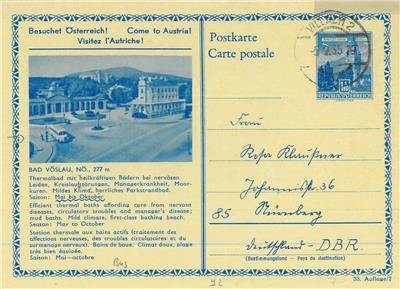 Besuchet Österreich! Come to Austria!
Visitez l'Autriche!
BAD VÖSLAU, NÖ., 277 m
Thermalbad mit heilkräftigen Bädern bei nervösen
Leiden, Kreislaufstörungen, Managerkrankheit, Moor-
kuren. Mildes Klima, herrliches Parkstrandbad.
Saison: Mai bis Oktober.
Efficient thermal baths affording cure from nervous
diseases, circulatory troubles and manager's disease;
mud baths. Mild climate, first-class bathing beach.
Season: May to October
Station thermale aux bains actifs (traitement des
affections nerveuses, des troubles circulatoires et du
surmenage nerveux). Bains de boue. Climat doux; plage
très bien équipée.
Saison: Mai—octobre
Postkarte
Carte postale
VILLACH 2
REPUBLIK ÖSTERREICH
Frau
Rosa Klaußner
Johannisstr. 36
85 Nürnberg
Deutschland - DBR
(Bestimmungsland - Pays de destination)
33. Auflage/2
92